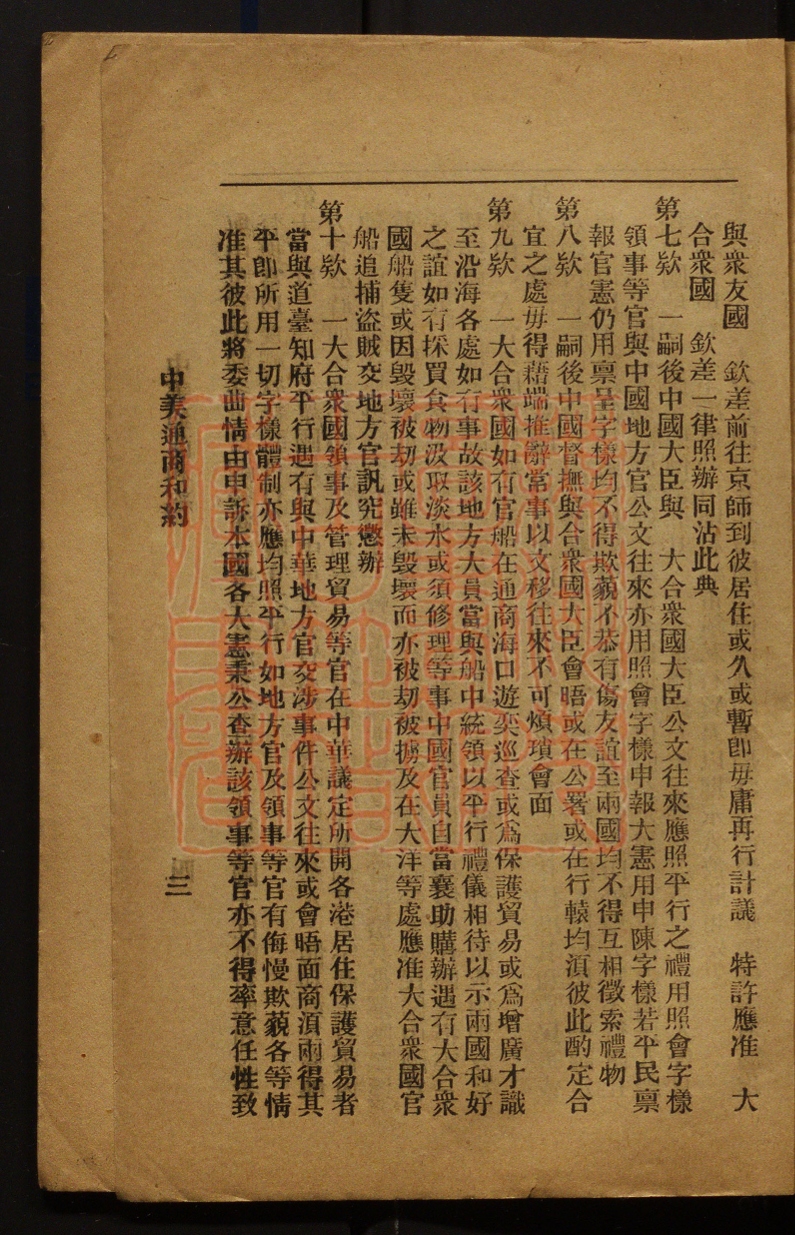 與衆友國　欽差前往京師到彼居住或久或暫卽毋庸再行計議　特許應准　大
合衆國　欽差一律照辦同沾此典
第七欵　一嗣後中國大臣與　大合衆國大臣公文往來應照平行之禮用照會字樣
領事等官與中國地方官公文往來亦用照會字樣申報大憲用申陳字樣若平民禀
報官憲仍用禀呈字樣均不得欺藐不恭有傷友誼至兩國均不得互相徵索禮物
第八欵　一嗣後中國督撫與合衆國大臣會晤或在公署或在行轅均湏彼此酌定合
宜之處毋得藉端推辭當事以文移往來不可煩瑣會面
第九欵　一大合衆國如有官船在通商海口遊奕巡查或爲保護貿易或爲增廣才識
至沿海各處如有事故該地方大員當與船中統領以平行禮儀相待以示兩國和好
之誼如有採買食物汲取淡水或須修理等事中國官員自當襄助購辦遇有大合衆
國船隻或因毀壞被刧或雖未毀壞而亦被刧被擄及在大洋等處應准大合衆國官
船追捕盜賊交地方官訊究懲辦
第十欵　一大合衆國領事及管理貿易等官在中華議定所開各港居住保護貿易者
當與道臺知府平行遇有與中華地方官交涉事件公文往來或會晤面商湏兩得其
平卽所用一切字樣體制亦應均照平行如地方官及領事等官有侮慢欺藐各等情
准其彼此將委曲情由申訴本國各大憲秉公查辦該領事等官亦不得率意任性致
中美通商和約
三